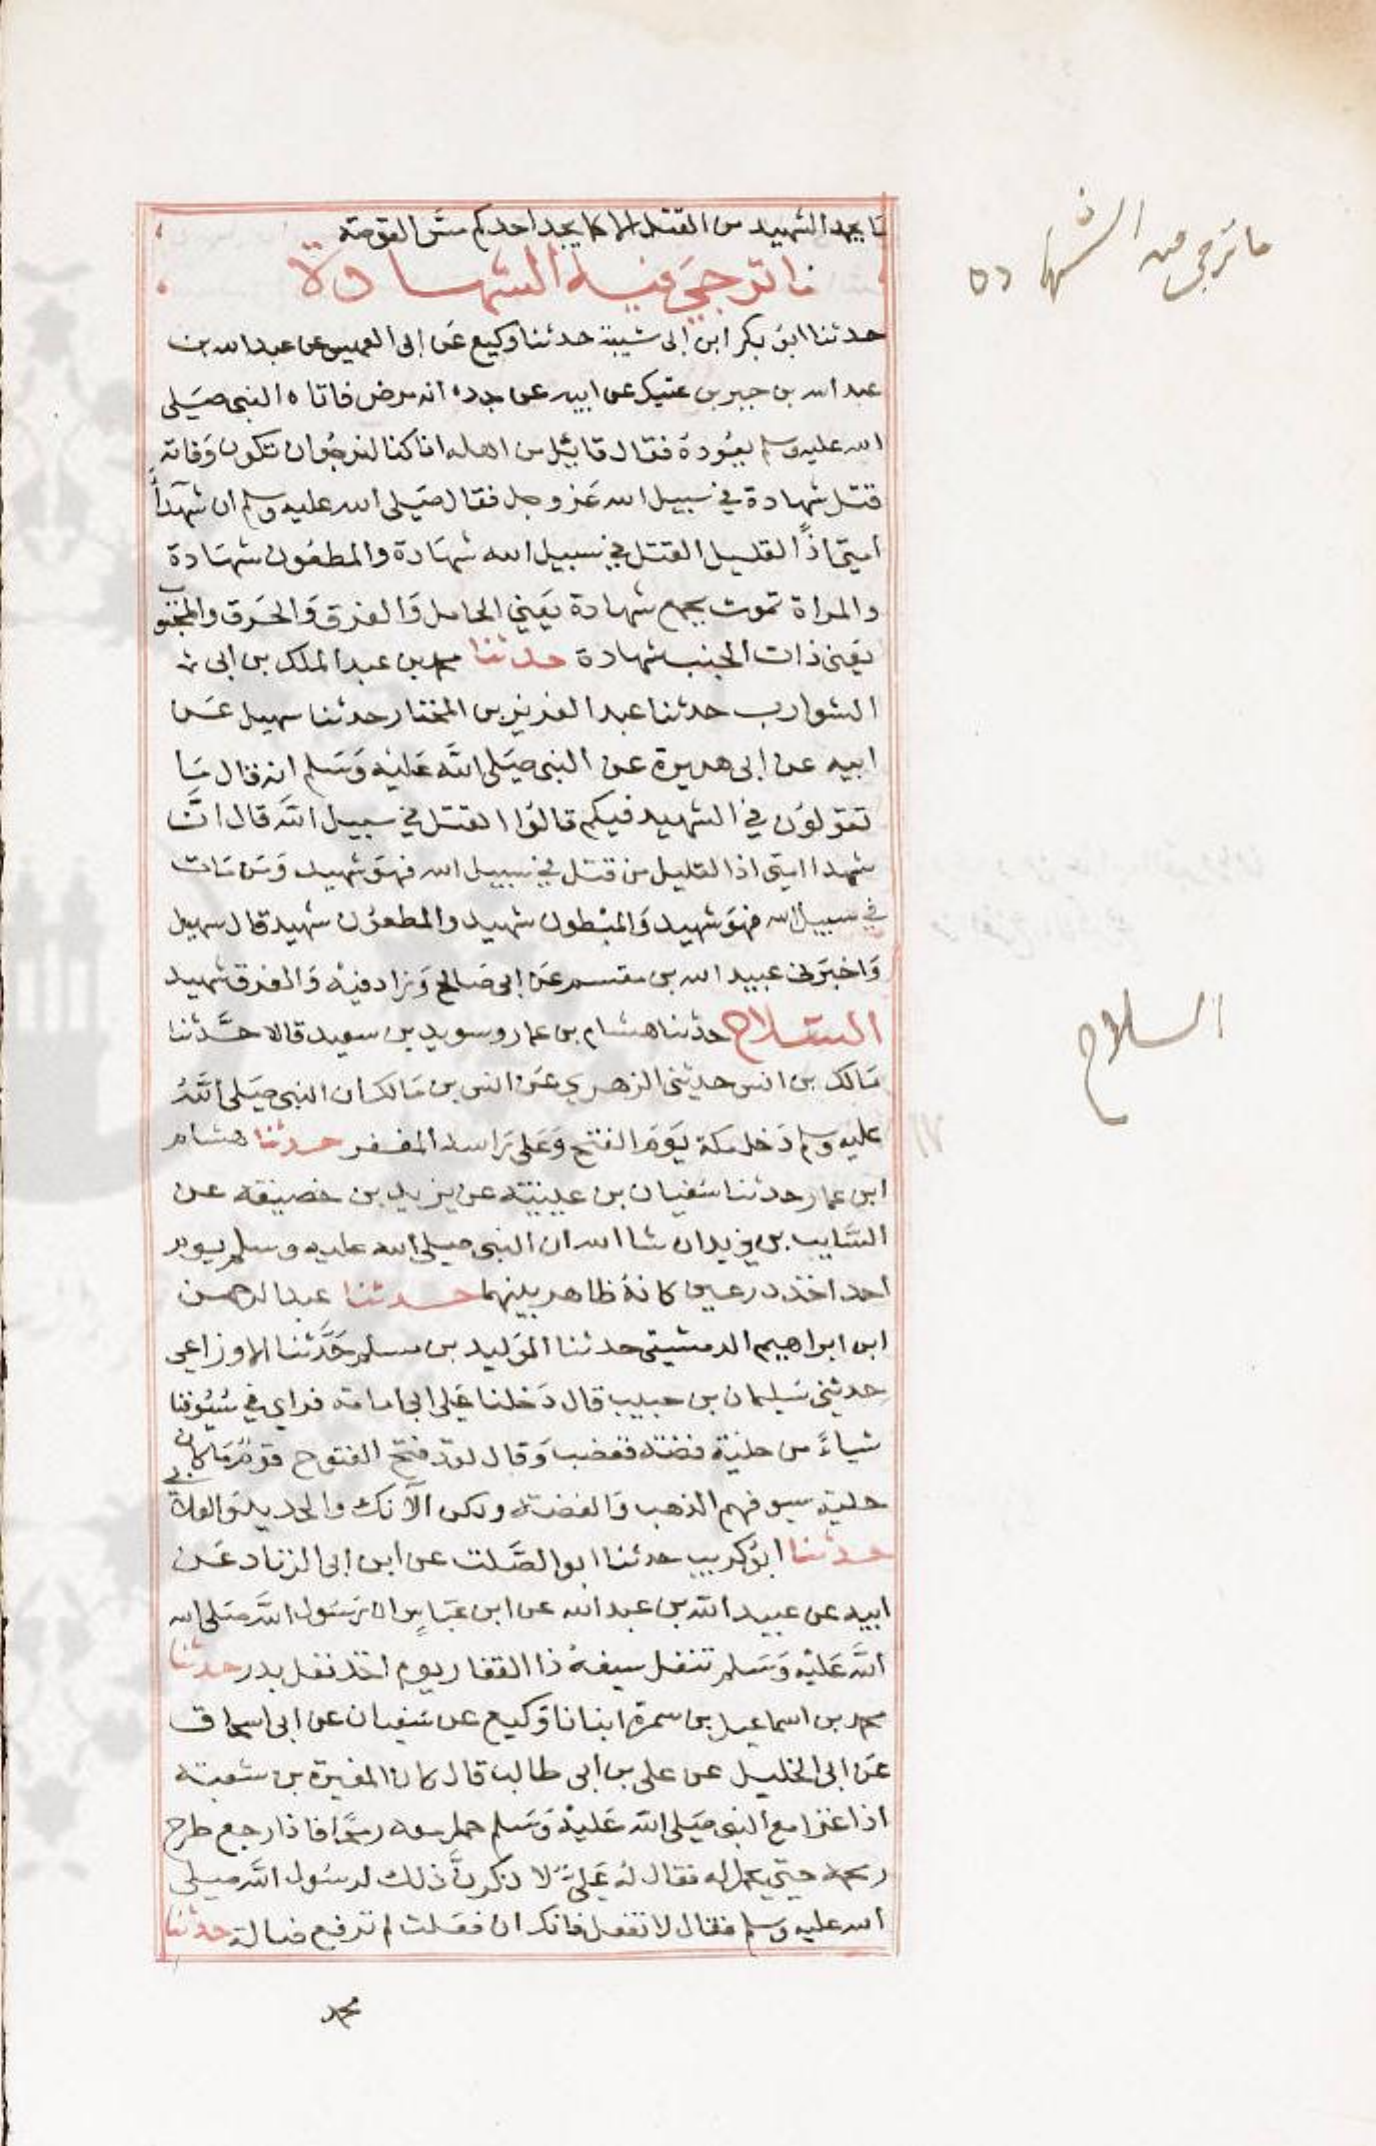 ما يجد الشهيد من القتل الا كما يجد احدكم مس القرصة
ما ترجى فيه الشهادة
ما ترجى فيه الشهاده
حدثنا ابو بكر ابن ابى شيبة حدثنا وكيع عن ابى العميس عن عبد الله بن
عبد الله بن جبر بن عتيك عن ابيه عن جده انه مرض فاتاه النبى صلى
الله عليه وسلم يعوده فقال قائل من اهله انا كنا لنرجوا ان تكون وفاته
قتل شهادة في سبيل الله عز وجل فقال صلى الله عليه وسلم ان شهدآ
امتي اذًا لقليل القتل في سبيل الله شهادة والمطعون شهادة
والمراة تموت بجمع شهادة يعني الحامل والغرق والحرق والمجنوب
يعنى ذات الجنب شهادة حدثنا محمد بن عبد الملك بن ابى
الشوارب حدثنا عبد العزيز بن المختار حدثنا سهيل عن
ابيه عن ابى هريرة عن النبى صلى الله عليه وسلم انه قال ما
تقولون في الشهيد فيكم قالوا القتل في سبيل الله قال ان
شهدا امتى اذا لقليل من قتل في سبيل الله فهو شهيد ومن مات
في سبيل الله فهو شهيد والمبطون شهيد والمطعون شهيد قال سهيل
واخبرنى عبيد الله بن مقسم عن ابى صالح وزاد فيه والغرق شهيد
السلاح حدثنا هشام بن عمار وسويد بن سعيد قالا حدثنا
السلاح
مالك بن انس حدثنى الزهري عن انس بن مالك ان النبى صلى الله
عليه وسلم دخل مكة يوم الفتح وعلى راسه المغفر حدثنا هشام
ابن عمار حدثنا سفيان بن عيينة عن يزيد بن خصيفة عن
السايب بن يزيد ان شا الله ان النبى صلى الله عليه وسلم يوم
احد اخذ درعين كانه ظاهر بينهما حدثنا عبد الرحمن
ابن ابراهيم الدمشقى حدثنا الوليد بن مسلم حدثنا الاوزاعى
حدثنى سليمان بن حبيب قال دخلنا على ابى امامة فراى في سيوفنا
شياءً من حلية فضة فغضب وقال لقد فتح الفتوح قوم ما كان
حلية سيوفهم الذهب والفضة ولكن الآنك والحديد والعلابي
حدثنا ابو كريب حدثنا ابو الصلت عن ابن ابى الزناد عن
ابيه عن عبيد الله بن عبد الله عن ابن عباس ان رسول الله صلى الله
الله عليه وسلم تنفل سيفه ذا الفقار يوم بدر حدثنا
محمد بن اسماعيل بن سمرة انبانا وكيع عن سفيان عن ابى اسحاق
عن ابى الخليل عن على بن ابى طالب قال كان المغيرة بن شعبة
اذا غزا مع النبى صلى الله عليه وسلم حمل معه رمحًا فاذا رجع طرح
رمحه حتي يحمل له فقال له علي لا ذكرن ذلك لرسول الله صلى
الله عليه وسلم فقال لا تفعل فانك ان فعلت لم ترفع ضالة حدثنا
محمد